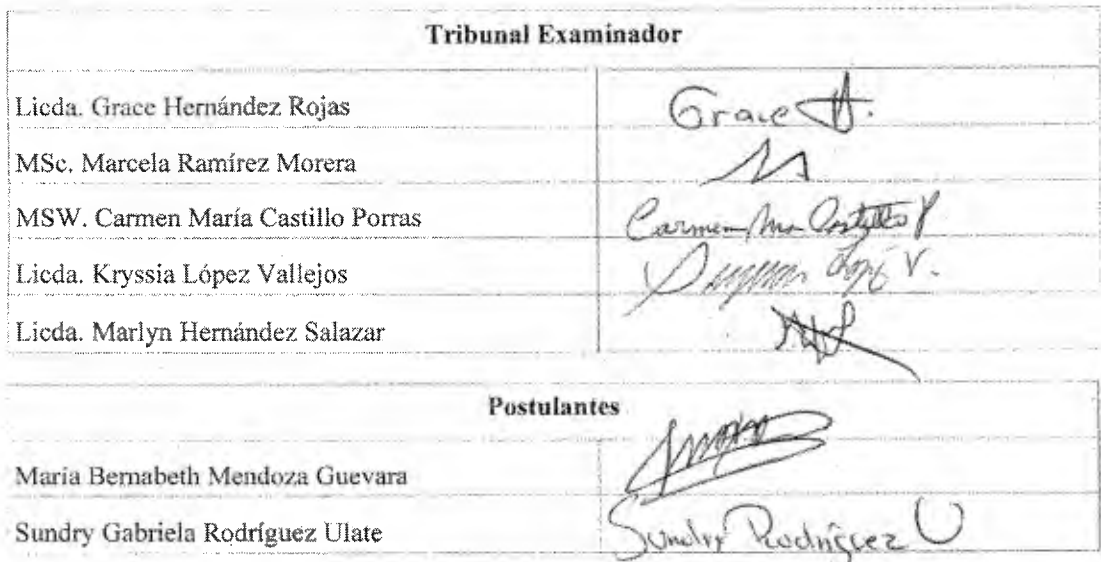 Tribunal Examinador
Licda. Grace Hernández Rojas Grace H.
MSc. Marcela Ramírez Morera
MSW. Carmen María Castillo Porras Carmen Ma Castillo P
Licda. Kryssia López Vallejos López V.
Licda. Marlyn Hernández Salazar
Postulantes
María Bernabeth Mendoza Guevara
Sundry Gabriela Rodríguez Ulate Sundry Rodríguez U